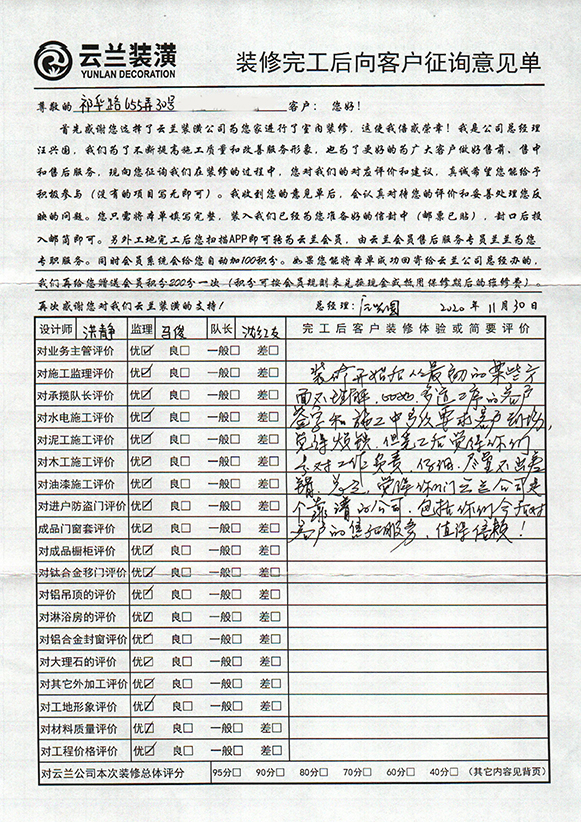 云兰装潢
YUNLAN DECORATION
装修完工后向客户征询意见单
尊敬的 祁华路655弄30号 客户：您好！
首先感谢您选择了云兰装潢公司为您家进行了室内装修，这使我倍感荣幸！我是公司总经理
汪兴国，我们为了不断提高施工质量和改善服务形象，也为了更好的为广大客户做好售前、售中
和售后服务，现向您征询我们在装修的过程中，您对我们的对应评价和建议，真诚希望您能给予
积极参与（没有的项目写无即可）。我收到您的意见单后，会认真对待您的评价和妥善处理您反
映的问题。您只需将本单填写完整，装入我们已经为您准备好的信封中（邮票已贴），封口后投
入邮筒即可。另外工地完工后您扫描APP即可转为云兰会员，由云兰会员售后服务专员兰兰为您
专职服务。同时会员系统会给您自动加100积分。如果您能将本单成功回寄给云兰公司总经办的，
我们再给您赠送会员积分200分一次（积分可按会员规则来兑换现金或抵用保修期后的维修费）。
再次感谢您对我们云兰装潢的支持！ 总经理： 2020 年 11 月 30 日
设计师 洪静 监理 马俊 队长 沈红友 完工后客户装修体验或简要评价
对业务主管评价 优☑ 良□ 一般□ 差□
对施工监理评价 优☑ 良□ 一般□ 差□ 装修开始从最初的某些方
对承揽队长评价 优☑ 良□ 一般□ 差□ 面不理解，多道工序的客户
对水电施工评价 优☑ 良□ 一般□ 差□ 签字和施工中多次要求客户到场，
对泥工施工评价 优☑ 良□ 一般□ 差□ 觉得烦锁，但完工后觉得你们
对木工施工评价 优☑ 良□ 一般□ 差□ 对工作负责、仔细、尽量不出差
对油漆施工评价 优☑ 良□ 一般□ 差□ 错。总之，觉得你们云兰公司是
对进户防盗门评价 优☑ 良□ 一般□ 差□ 个靠谱的公司，包括你们今后对
成品门窗套评价 优☑ 良□ 一般□ 差□ 客户的售后服务，值得信赖！
对成品橱柜评价 优☑ 良□ 一般□ 差□
对钛合金移门评价 优☑ 良□ 一般□ 差□
对铝吊顶的评价 优☑ 良□ 一般□ 差□
对淋浴房的评价 优☑ 良□ 一般□ 差□
对铝合金封窗评价 优☑ 良□ 一般□ 差□
对大理石的评价 优☑ 良□ 一般□ 差□
对其它外加工评价 优☑ 良□ 一般□ 差□
对工地形象评价 优☑ 良□ 一般□ 差□
对材料质量评价 优☑ 良□ 一般□ 差□
对工程价格评价 优☑ 良□ 一般□ 差□
对云兰公司本次装修总体评分 95分□ 90分□ 80分□ 70分□ 60分□ 40分□ （其它内容见背页）